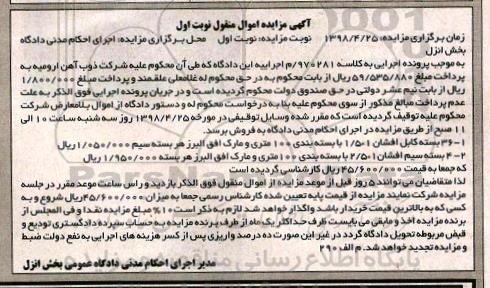 آگهی مزایده اموال منقول نوبت اول
زمان برگزاری مزایده: ۱۳۹۸/۴/۲۵ نوبت مزایده: نوبت اول محل برگزاری مزایده: اجرای احکام مدنی دادگاه
بخش انزل
به موجب پرونده اجرایی به کلاسه ۹۷۰۲۸۱/م اجراییه این دادگاه که طی آن محکوم علیه شرکت ذوب آهن ارومیه به
پرداخت مبلغ ۵۹/۵۳۵/۸۸۰ ریال از بابت محکوم به در حق محکوم له غلامعلی علقمند و پرداخت مبلغ ۱/۸۰۰/۰۰۰
ریال از بابت نیم عشر دولتی در حق صندوق دولت محکوم گردیده است و در جریان پرونده اجرایی فوق الذکر به علت
عدم پرداخت مبالغ مذکور از سوی محکوم علیه بنا به درخواست محکوم له و دستور دادگاه از اموال بلامعارض شرکت
محکوم علیه توقیف گردیده است که مقرر شده وسایل توقیفی در مورخه ۱۳۹۸/۴/۲۵ روز سه شنبه ساعت ۱۰ الی
۱۱ صبح از طریق مزایده در اجرای احکام مدنی دادگاه به فروش برسد.
۱-۳۶ بسته کابل افشان ۱/۵۰۱ با بسته بندی ۱۰۰ متری و مارک افق البرز هر بسته سیم ۱/۰۵۰/۰۰۰ ریال
۲-۴ بسته سیم افشان ۲/۵۰۱ با بسته بندی ۱۰۰ متری و مارک افق البرز هر بسته ۱/۹۵۰/۰۰۰ ریال
که جمعا به قیمت ۴۵/۶۰۰/۰۰۰ ریال کارشناسی گردیده است
لذا متقاضیان می توانند ۵ روز قبل از موعد مزایده از اموال منقول فوق الذکر بازدید و راس ساعت موعد مقرر در جلسه
مزایده شرکت نمایند مزایده از قیمت پایه تعیین شده کارشناس رسمی جمعا به میزان ۴۵/۶۰۰/۰۰۰ ریال شروع و به
کسی که به بالاترین قیمت خریدار باشد واگذار خواهد شد. لازم به ذکر است ۱۰٪ مبلغ مزایده نقدا و فی المجلس از
برنده مزایده اخذ و مابقی می بایست ظرف حداکثر یک ماه از طرف برنده مزایده به حساب سپرده دادگستری تودیع و
قبض مربوطه تحویل دادگاه گردد در غیر این صورت ده درصد واریزی پس از کسر هزینه های اجرایی به نفع دولت ضبط
و مزایده تجدید خواهد شد. م الف ۲۹۰
مدیر اجرای احکام مدنی دادگاه عمومی بخش انزل